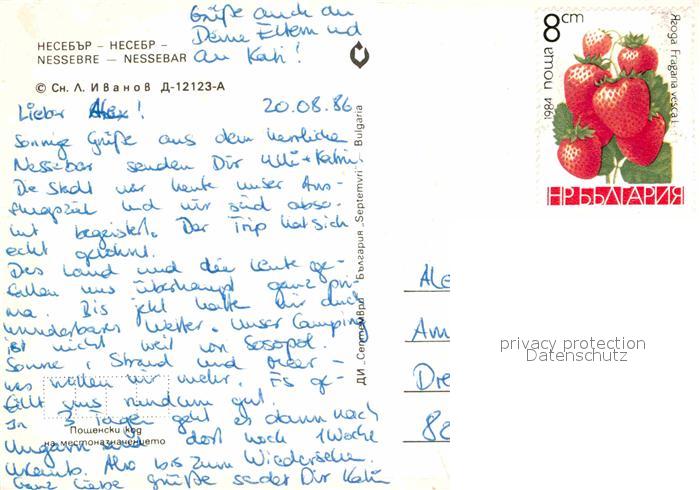 Grüße auch an
Deine Eltern und
an Kati!
НЕСЕБЪР – НЕСЕБР –
NESSEBRE – NESSEBAR
© Сн. Л. Иванов Д-12123-А
Lieber Alex! 20.08.86
Sonnige Grüße aus dem herrlichen
Nessebar senden Dir Ulli + Katrin.
Die Stadt war heute unser Aus-
flugsziel und wir sind abso-
lut begeistert. Der Trip hat sich
echt gelohnt.
Das Land und die Leute ge-
fallen uns überhaupt ganz pri-
ma. Bis jetzt hatten wir auch
wunderbares Wetter. Unser Camping
ist nicht weit von Sosopol.
Sonne, Strand und Meer –
was wollen wir mehr. Es ge-
fällt uns rundum gut.
In 3 Tagen geht es dann nach
Ungarn und dort noch 1 Woche
Urlaub. Also bis zum Wiedersehen.
Ganz liebe Grüße sendet Dir Katrin
Пощенски код
на местоназначението
ДИ „Септември" България „Septemvri" Bulgaria
8 cm
поща
1984
Ягода Fragaria vesca L.
НР БЪЛГАРИЯ
Ale
Am
Dre
80
privacy protection
Datenschutz